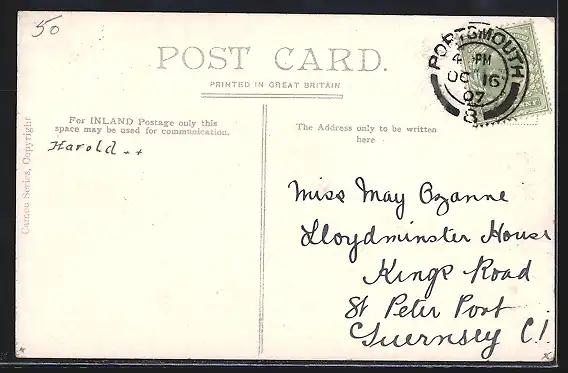 50
POST CARD.
PRINTED IN GREAT BRITAIN
PORTSMOUTH
4 PM
OC 16
07
8
For INLAND Postage only this
space may be used for communication.
The Address only to be written
here
Harold . +
Cameo Series, Copyright
Miss May Ozanne
Lloydminster House
Kings Road
St Peter Port
Guernsey C.I.